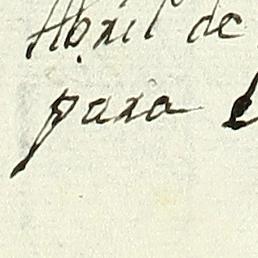 Abril de
para